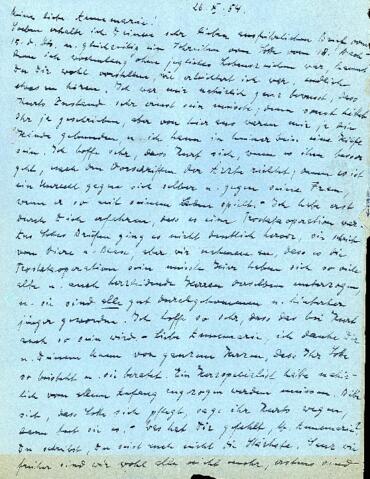 26. X. 54.
Meine liebe Annemarie!
Soeben erhalte ich Deinen sehr lieben ausführlichen Brief vom
15. d. Mts. u. gleichzeitig ein Schreiben von Loke vom 18. Nach-
dem ich wochenlang ohne jegliches Lebenszeichen war, kannst
Du Dir wohl vorstellen, wie erleichtert ich war, endlich
etwas zu hören. Ich war mir natürlich ganz bewusst, dass
Kurts Zustand sehr ernst sein musste, denn sonst hättet
Ihr ja geschrieben, aber von hier aus waren mir ja die
Hände gebunden, u. ich kann in keiner Weise eine Hilfe
sein. Ich hoffe sehr, dass Kurt sich, wenn es ihm besser
geht, nach den Vorschriften der Ärzte richtet, denn es ist
ein Unrecht gegen sich selber u. gegen seine Frau,
wenn er so mit seinem Leben spielt. - Ich habe erst
durch Dich erfahren, dass es eine Prostataoperation war.
Aus Lokes Briefen ging es nicht deutlich hervor, sie schrieb
von Niere u. Blase, aber wir nahmen an, dass es die
Prostataoperation sein müsste. Hier haben sich so viele
alte u. auch herzleidende Herren derselben unterzogen
u. sie sind alle gut durchgekommen u. hinterher
jünger geworden. Ich hoffe so sehr, dass das bei Kurt
auch so sein wird. - Liebe Annemarie, ich danke Dir
u. Deinem Mann von ganzem Herzen, dass Ihr Loke
so beisteht u. sie beratet. Ein Herzspezialist hätte natür-
lich von allem Anfang zugezogen werden müssen. Bitte
sich, dass Loke sich pflegt, sage ihr Kurts wegen,
denn tut sie es. - Was hat Dir gefehlt, lb. Annemarie?
Du schreibst, Du seist auch nicht die Stärkste. Ganz wie
früher sind wir wohl alle nicht mehr, erstens sind